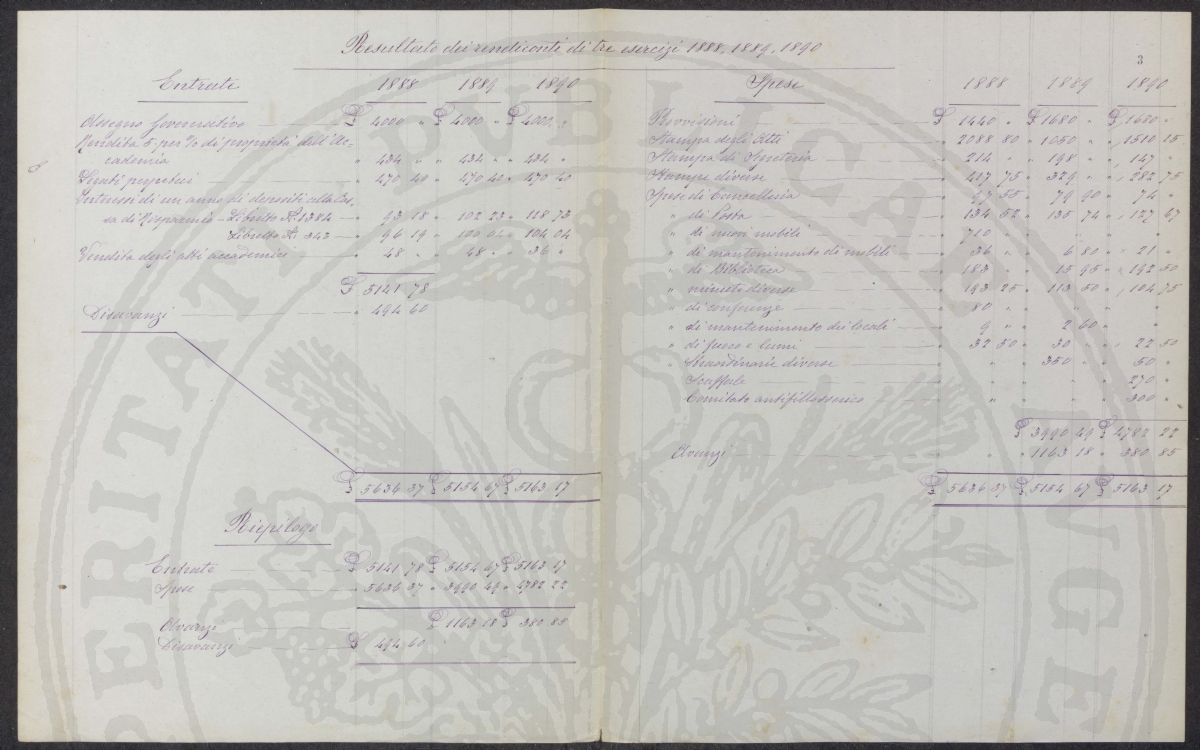 Resultato dei rendiconti di tre esercizi 1888, 1889, 1890
3
Entrate 1888 1889 1890
Assegno Governativo £ 4000 " £ 4000 " £ 4000 "
Rendita 5 per % di proprietà dell'Ac-
cademia " 434 " " 434 " " 434 "
Legati perpetui " 470 40 " 470 40 " 470 40
Interessi di un anno di depositi alla Cas-
sa di Risparmio - Libretto N. 1384 " 93 18 " 102 23 " 118 73
Libretto N. 343 " 96 19 " 100 04 " 104 04
Vendita degli atti accademici " 48 " " 48 " " 36 "
£ 5141 78
Disavanzi " 494 60
£ 5636 37 £ 5154 67 £ 5163 17
Riepilogo
Entrate £ 5141 78 £ 5154 67 £ 5163 17
Spese " 5636 37 " 3990 49 " 4782 22
Avanzi £ 1163 18 £ 380 85
Disavanzi £ 494 60
Spese 1888 1889 1890
Provvisioni £ 1440 " £ 1680 " £ 1680 "
Stampa degli Atti " 2088 80 " 1050 " " 1510 15
Stampa di Segreteria " 214 " " 198 " " 147 "
Stampe diverse " 417 75 " 329 " " 282 75
Spese di Cancelleria " 97 55 " 79 90 " 74 "
" di Posta " 134 52 " 135 74 " 127 67
" di nuovi mobili " 710 " " " " "
" di mantenimento di mobili " 36 " " 6 80 " 21 "
" di Biblioteca " 183 " " 15 95 " 192 50
" minute diverse " 193 25 " 113 50 " 104 75
" di conferenze " 80 " " " " "
" di mantenimento dei locali " 9 " " 2 60 " "
" di fuoco e lumi " 32 50 " 30 " " 22 50
" Straordinarie diverse " " " 350 " " 50 "
" Scaffale " " " " " 270 "
" Comitato antifillosserico " " " " " 300 "
£ 3990 49 £ 4782 22
Avanzi " " " 1163 18 " 380 85
£ 5636 37 £ 5154 67 £ 5163 17
PERITATI PVBLICAE LVCE